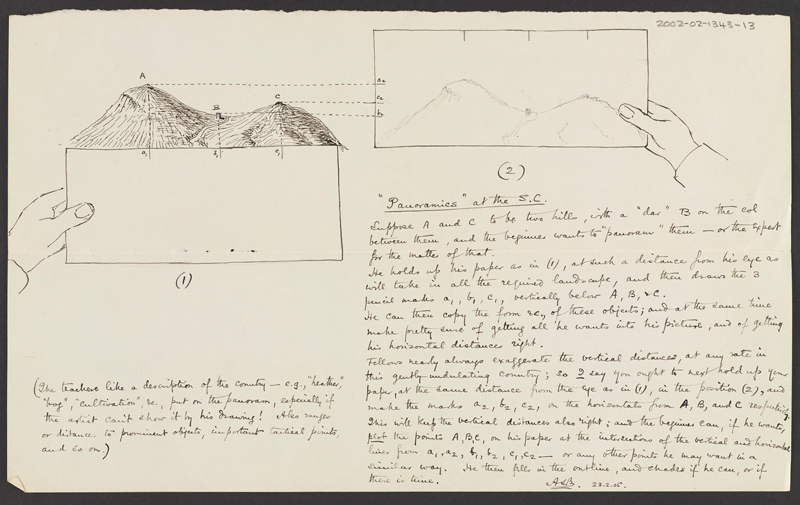 2002-02-1343-13
A
B
C
a2
c2
b2
a1
b1
c1
(1)
(2)
"Panoramics" at the S.C.
Suppose A and C to be two hills, with a "dar" B on the col
between them, and the beginner wants to "panoram" them — or the expert
for the matter of that.
He holds up his paper as in (1), at such a distance from his eye as
will take in all the required landscape, and then draws the 3
pencil marks a1, b1, c1, vertically below A, B, & C.
He can then copy the form &c, of these objects; and at the same time
make pretty sure of getting all he wants into his picture, and of getting
his horizontal distances right.
Fellows nearly always exaggerate the vertical distances, at any rate in
this gently-undulating country; so I say you ought to next hold up your
paper, at the same distance from the eye as in (1), in the position (2), and
make the marks a2, b2, c2, on the horizontals from A, B, and C respectively.
This will keep the vertical distances also right; and the beginner can, if he wants,
plot the points A, B, C, on his paper at the intersections of the vertical and horizontal
lines from a1, a2, b1, b2, c1, c2 — or any other points he may want in a
similar way. He then fills in the outline, and shades if he can, or if
there is time.
22.2.05.
(The teachers like a description of the country — e.g., "heather,"
"bog", "cultivation", &c., put on the panoram, especially if
the artist can't show it by his drawing! Also ranges
or distances to prominent objects, important tactical points,
and so on.)